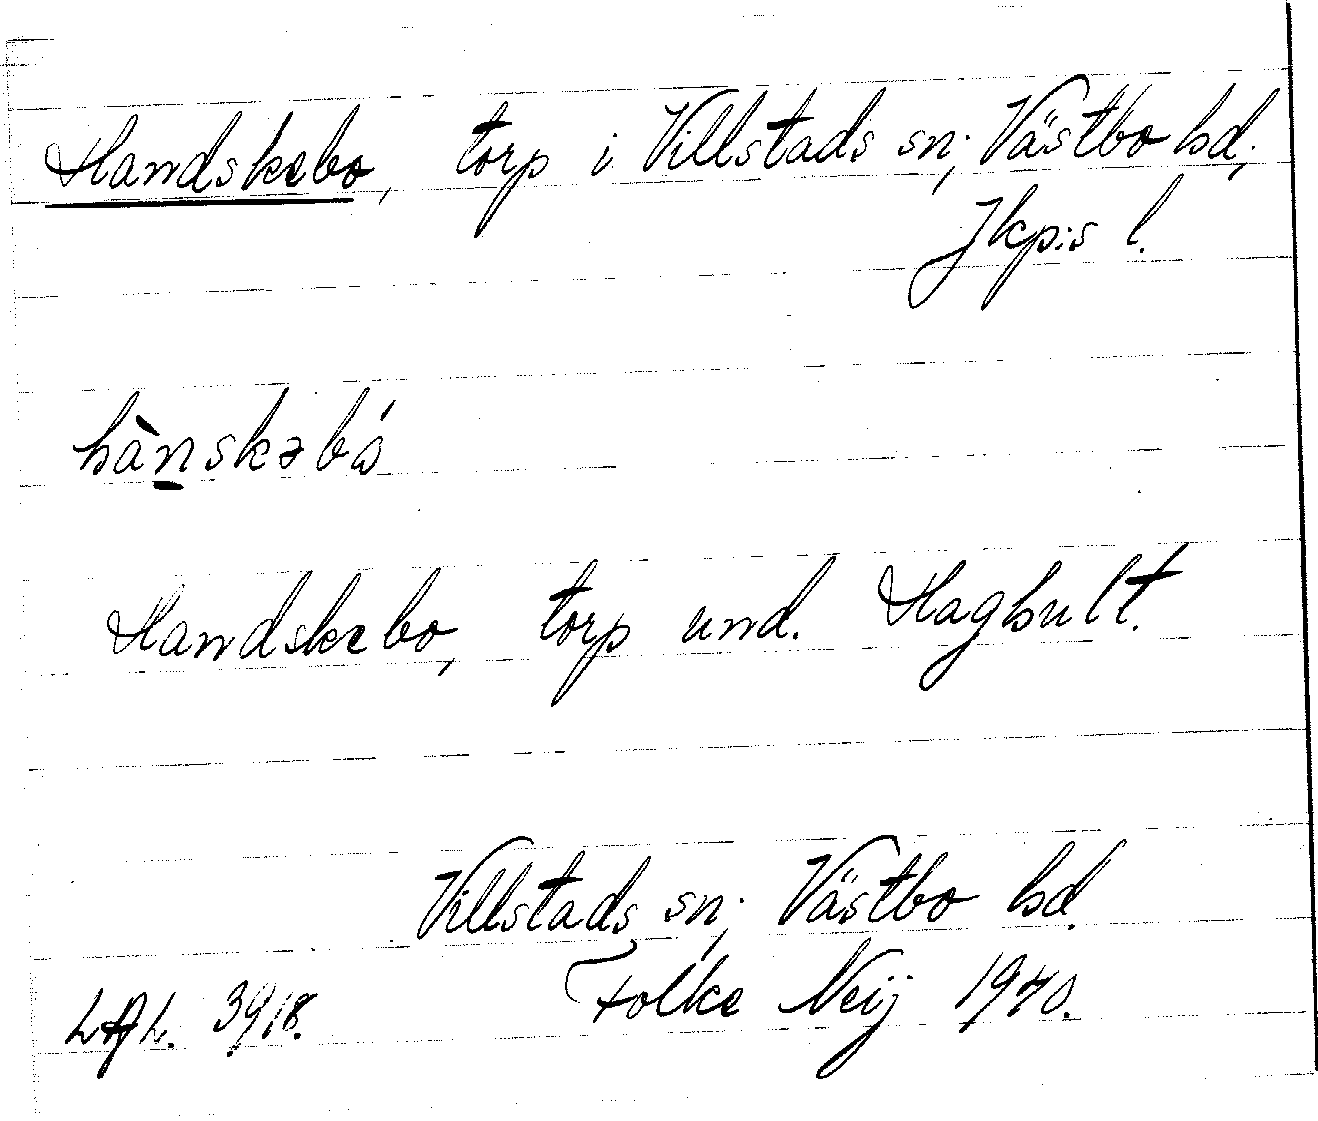 Handskebo, torp i Villstads sn; Västbo hd;
Jkp:s l.
hànskəbó
Handskebo, torp und. Haghult.
Villstads sn; Västbo hd.
Folke Neij 1940.
3918.